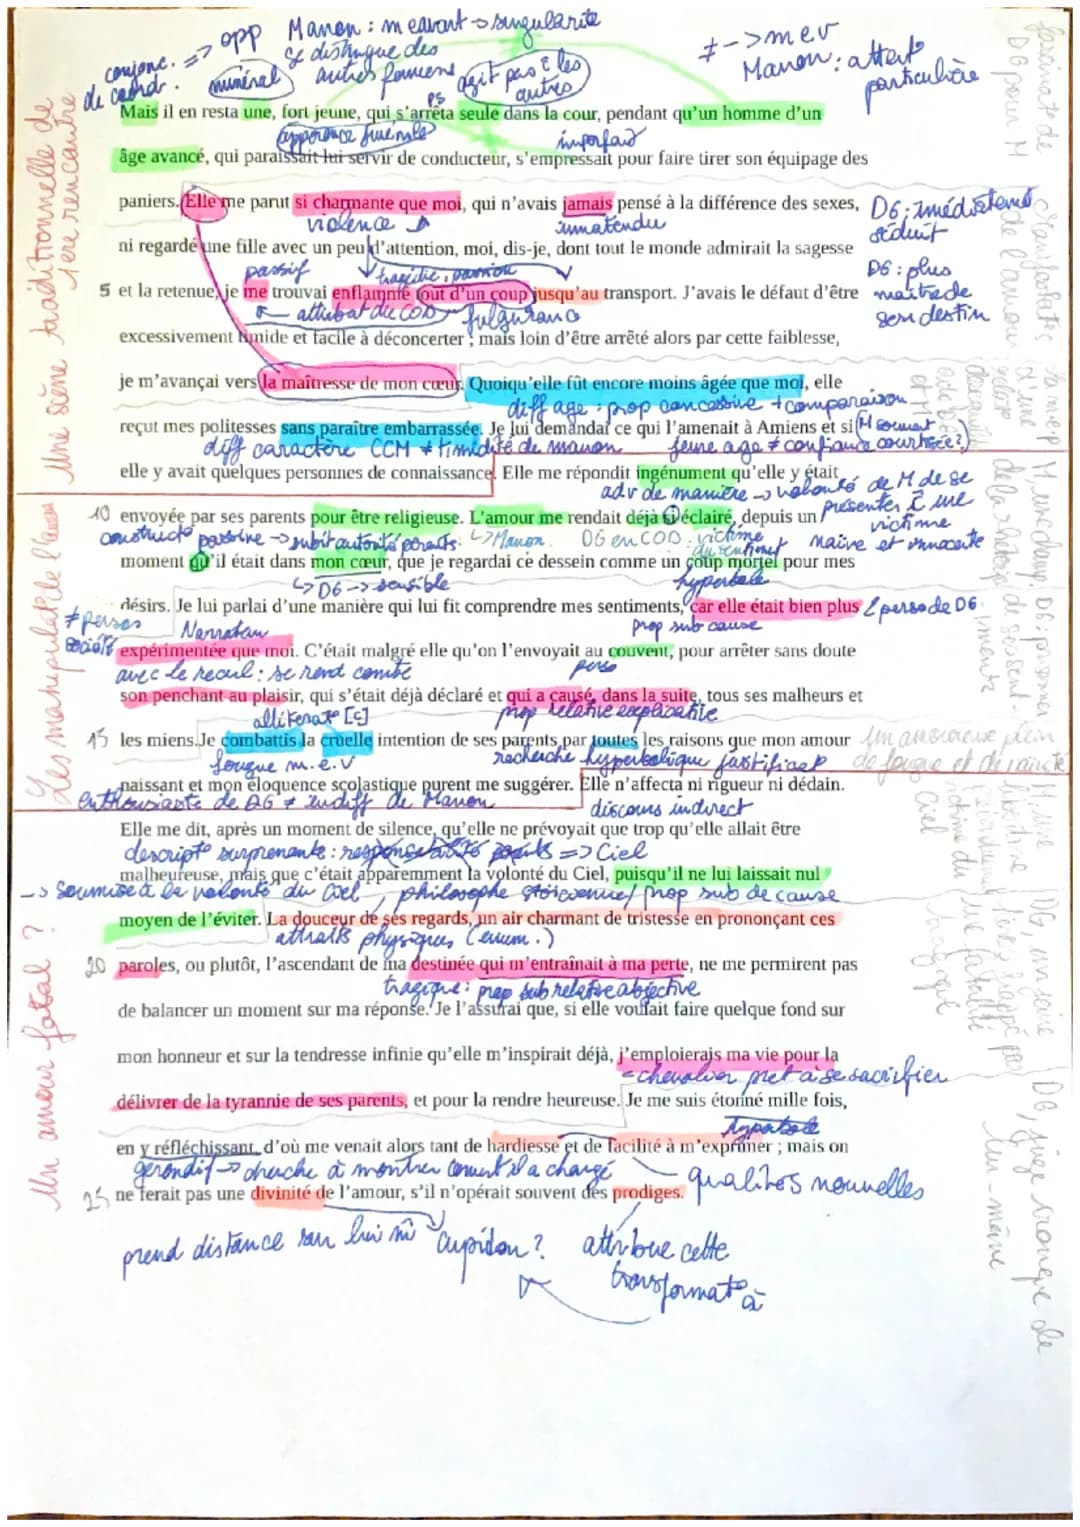 conjonc. de coord. => opp
Manon : m e avant -> singularité
se distingue des autres
agit pas c les autres
numéral
≠ -> mev
Manon : attent° particulière
ps
Mais il en resta une, fort jeune, qui s'arrêta seule dans la cour, pendant qu'un homme d'un
imparfait
âge avancé, qui paraissait lui servir de conducteur, s'empressait pour faire tirer son équipage des
paniers. Elle me parut si charmante que moi, qui n'avais jamais pensé à la différence des sexes,
violence
inattendu
DG : immédiatement séduit
ni regardé une fille avec un peu d'attention, moi, dis-je, dont tout le monde admirait la sagesse
passif
tragédie, passion
DG : plus maître de son destin
5 et la retenue, je me trouvai enflammé tout d'un coup jusqu'au transport. J'avais le défaut d'être
attribut du COD
fulgurance
excessivement timide et facile à déconcerter ; mais loin d'être arrêté alors par cette faiblesse,
je m'avançai vers la maîtresse de mon cœur. Quoiqu'elle fût encore moins âgée que moi, elle
diff age : prop concessive + comparaison
reçut mes politesses sans paraître embarrassée. Je lui demandai ce qui l'amenait à Amiens et si
diff caractère CCM ≠ timidité de manon
jeune age ≠ confiance
elle y avait quelques personnes de connaissance. Elle me répondit ingénument qu'elle y était
adv de manière -> volonté de M de se présenter c une victime naïve et innocente
10 envoyée par ses parents pour être religieuse. L'amour me rendait déjà si éclairé, depuis un
construct° passive -> subit autorité parents.
Manon.
DG en COD : victime du sentiment
moment qu'il était dans mon cœur, que je regardai ce dessein comme un coup mortel pour mes
DG -> sensible
hyperbole
désirs. Je lui parlai d'une manière qui lui fit comprendre mes sentiments, car elle était bien plus
Narrateur
prop sub cause
expérimentée que moi. C'était malgré elle qu'on l'envoyait au couvent, pour arrêter sans doute
avec le recul : se rend compte
son penchant au plaisir, qui s'était déjà déclaré et qui a causé, dans la suite, tous ses malheurs et
allitérat° [c]
prop relative explicative
15 les miens. Je combattis la cruelle intention de ses parents par toutes les raisons que mon amour
fougue m.e.v
recherche hyperbolique justificat°
naissant et mon éloquence scolastique purent me suggérer. Elle n'affecta ni rigueur ni dédain.
enthousiaste de DG ≠ indiff de Manon
discours indirect
Elle me dit, après un moment de silence, qu'elle ne prévoyait que trop qu'elle allait être
descript° surprenante : responsabilité parents => Ciel
malheureuse, mais que c'était apparemment la volonté du Ciel, puisqu'il ne lui laissait nul
-> Soumise à la volonté du Ciel, philosophe stoïcienne / prop sub de cause
moyen de l'éviter. La douceur de ses regards, un air charmant de tristesse en prononçant ces
attraits physiques (énum.)
20 paroles, ou plutôt, l'ascendant de ma destinée qui m'entraînait à ma perte, ne me permirent pas
tragique : prop sub relative adjective
de balancer un moment sur ma réponse. Je l'assurai que, si elle voulait faire quelque fond sur
mon honneur et sur la tendresse infinie qu'elle m'inspirait déjà, j'emploierais ma vie pour la
= chevalier prêt à se sacrifier
délivrer de la tyrannie de ses parents, et pour la rendre heureuse. Je me suis étonné mille fois,
hyperbole
en y réfléchissant, d'où me venait alors tant de hardiesse et de facilité à m'exprimer ; mais on
gérondif -> cherche à montrer comment il a changé
qualités nouvelles
25 ne ferait pas une divinité de l'amour, s'il n'opérait souvent des prodiges.
prend distance sur lui m̂
Cupidon ?
attribue cette transformat° à
Une scène traditionnelle de 1ère rencontre
Un amour fatal ?
Un amoureux plein de fougue et de naïveté
DG, juge ironique de lui-même